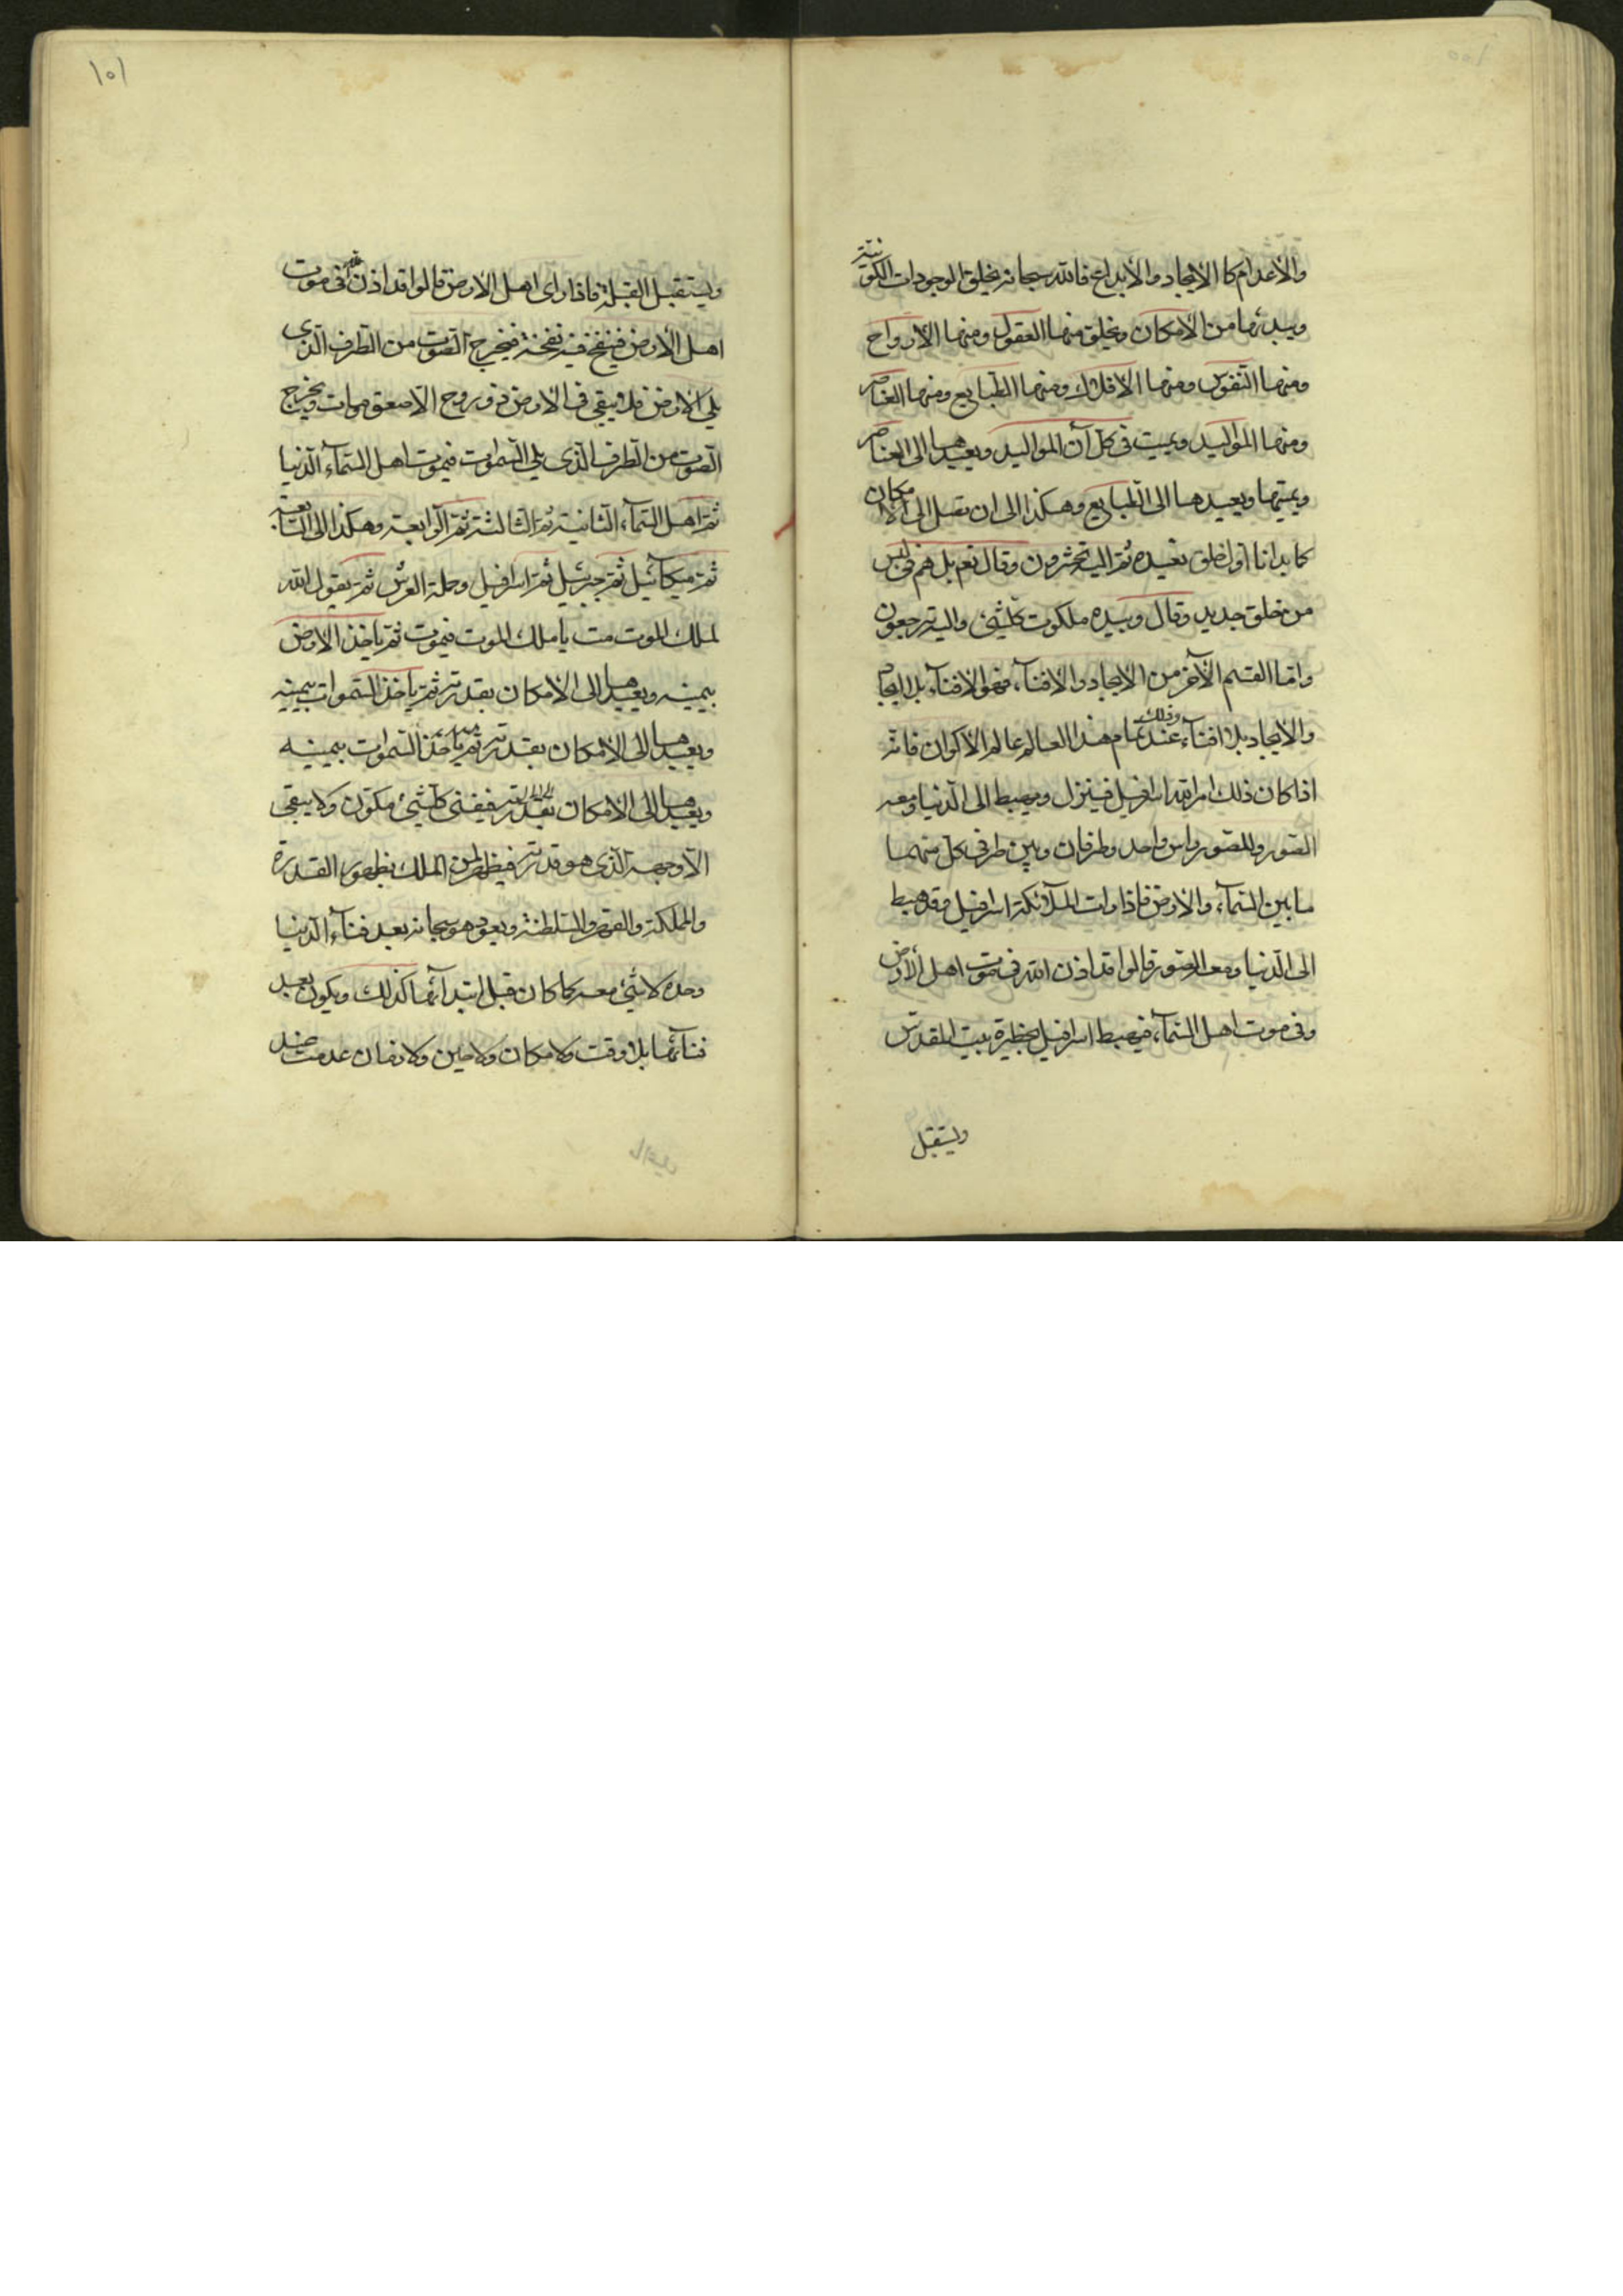 والأعدام كالإيجاد والأبداع فالله سبحانه يخلق الموجودات الكونية
ويبدئها من الامكان ويخلق منها العقول ومنها الأرواح
ومنها النفوس ومنها الافلاك ومنها الطبايع ومنها العناصر
ومنها المواليد ويميت فى كل آن المواليد ويعيدها الى العناصر
ويميتها ويعيدها الى الطبايع وهكذا الى ان تصل الى الامكان
كما بدانا اول خلق نعيده ثم اليه تحشرون وقال نعم بل هم فى لبس
من خلق جديد وقال وبيده ملكوت كلشئ واليه ترجعون
واما القسم الآخر من الايجاد والافنآء فهو الافنآء بلا ايجاد
والايجاد بلا افنآء وذلك عند تمام هذا العالم عالم الأكوان فانه
اذا كان ذلك امر الله اسرافيل فينزل ويهبط الى الدنيا ومعه
الصور وللصور راس واحد وطرفان وبين طرفى كل منهما
ما بين السمآء والارض فاذا رات الملآئكة اسرافيل وقد هبط
الى الدنيا ومعه الصور قالوا قد اذن الله فى موت اهل الأرض
وفى موت اهل السمآء فيهبط اسرافيل بحظيرة بيت المقدس
ويستقبل
١٥١
ويستقبل القبلة فاذا راى اهل الأرض قالوا قد اذن الله فى موت
اهل الأرض فينفخ فيه نفخة فيخرج الصوت من الطرف الذى
يلى الارض فلا يبقى فى الارض ذو روح الا صعق ومات ويخرج
الصوت من الطرف الذى يلى السموات فيموت اهل السمآء الدنيا
ثم اهل السمآء الثانية ثم الثالثة ثم الرابعة وهكذا الى السابعة
ثم ميكآئيل ثم جبرئيل ثم اسرافيل وحملة العرش ثم يقول الله
لملك الموت مت يا ملك الموت فيموت ثم ياخذ الارض
بيمينه ويعيدها الى الامكان بقدرته ثم ياخذ السموات بيمينه
ويعيدها الى الامكان بقدرته ثم ياخذ السموات بيمينه
ويعيدها الى الامكان بقدرته فيفنى كل شئ مكون ولا يبقى
الا وجهه الذى هو قدرته فيظهر لمن الملك بظهور القدرة
والمملكة والقهر والسلطنة ويعود هو سبحانه بعد فنآء الدنيا
وحده لا شئ معه كما كان قبل ابتدآئها كذلك ويكون بعد
فنآئها بلا وقت ولا مكان ولا حين ولا زمان عدمت عند